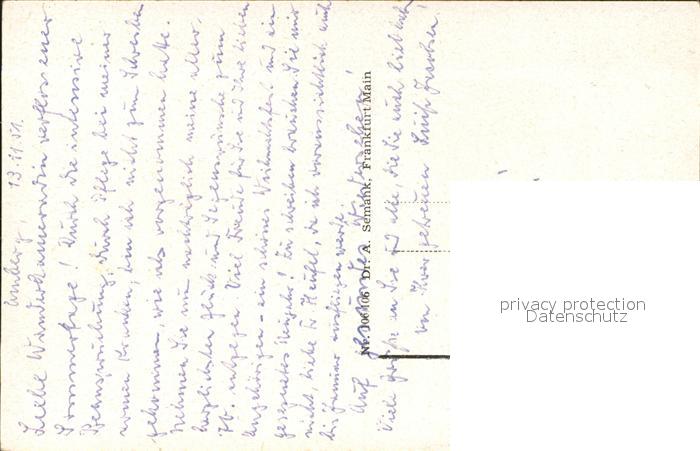 Amberg, 13.11.51.
Liebe Wanderkameradin verflossener
Sommertage! Durch die intensive
Beanspruchung durch Pflege bei meiner
armen Kranken, bin ich nicht zum Schreiben
gekommen, wie ich vorgenommen hatte.
Nehmen Sie nun nachträglich meine aller-
herzlichsten Glück- und Segenswünsche zum
entgegen. Viel Freude für Sie und Ihre lieben
Angehörigen - ein schönes Weihnachtsfest und ein
gesegnetes Neujahr! Zu schreiben brauchen Sie mir
nicht, liebe Fr. da ich voraussichtlich nach
bis Januar werde.
Auf gesundes Wiedersehen!
Viele Grüße an Sie und alle, die Sie auch lieb haben
von Ihrer getreuen
Nr. 106106 Dr. A. Semank, Frankfurt Main
privacy protection
Datenschutz